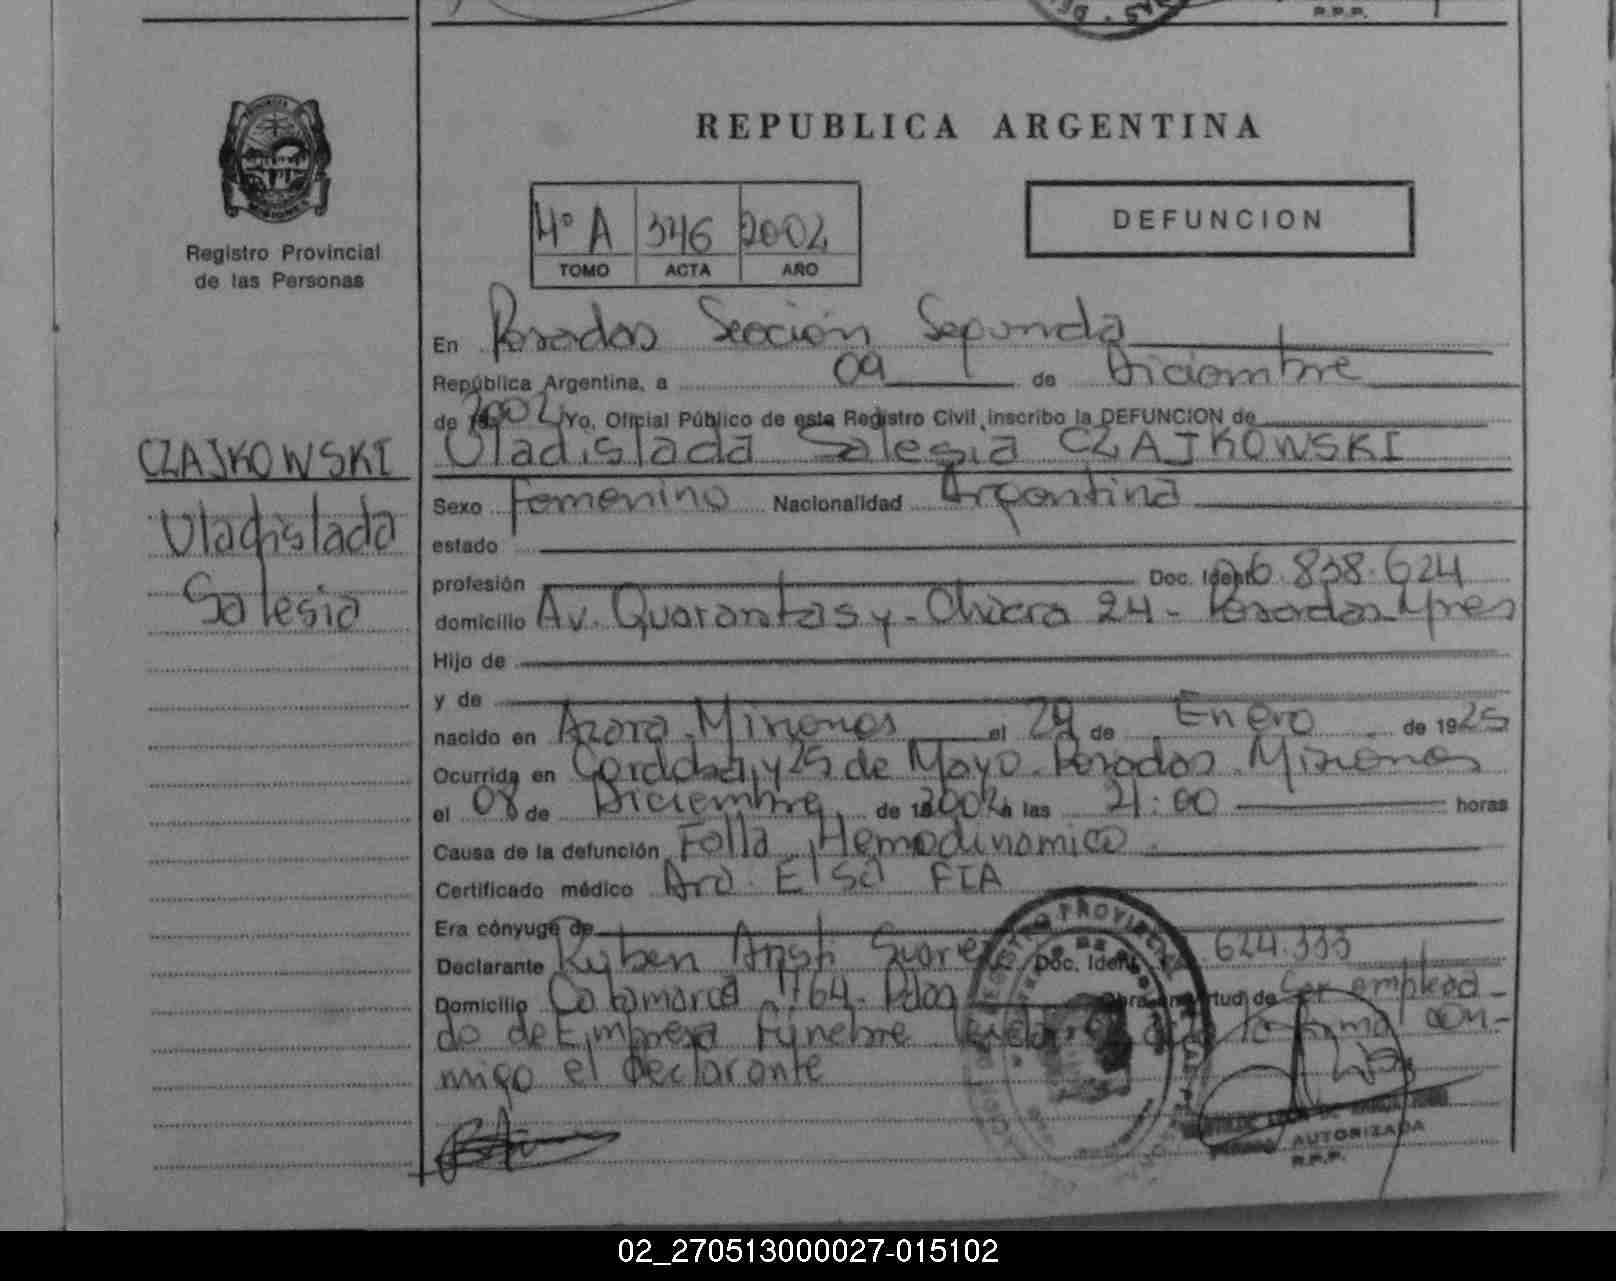 R.P.P.
REPUBLICA ARGENTINA
Registro Provincial
de las Personas
4º A 346 2002
TOMO ACTA AÑO
DEFUNCION
En Posadas Sección Segunda
República Argentina, a 09 de Diciembre
de 2002 Yo, Oficial Público de este Registro Civil, inscribo la DEFUNCION de
Vladislada Salesia CZAJKOWSKI
CZAJKOWSKI
Vladislada
Salesia
Sexo Femenino Nacionalidad Argentina
estado
profesión Doc. Ident. 06.838.624
domicilio Av. Quarantas y - Chacra 24 - Posadas Mnes
Hijo de
y de
nacido en Azara Misiones el 29 de Enero de 1925
Ocurrida en Cordoba y 25 de Mayo. Posadas. Misiones
el 08 de Diciembre de 2002 a las 21:00 horas
Causa de la defunción Falla Hemodinamica
Certificado médico Dra. Elsa FIA
Era cónyuge de
Declarante Ruben Suarez Doc. Ident. 624.333
Domicilio Catamarca 1764. Pdas Obra en virtud de ser emplea-
do de Empresa Funebre acta la firma con-
migo el declarante
REGISTRO PROVINCIAL
AUTORIZADA
R.P.P.
02_270513000027-015102